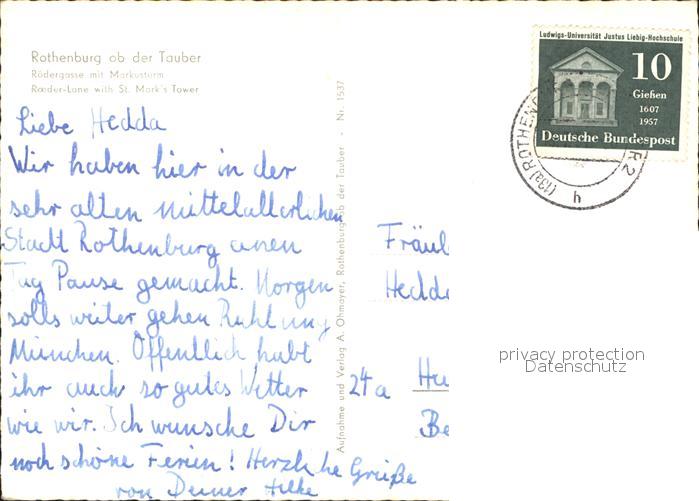 Rothenburg ob der Tauber
Rödergasse mit Markusturm
Rœder-Lane with St. Mark's Tower
Liebe Hedda
Wir haben hier in der
sehr alten mittelalterlichen
Stadt Rothenburg einen
Tag Pause gemacht. Morgen
solls weiter gehen Richtung
München. Öffentlich habt
ihr auch so gutes Wetter
wie wir. Ich wünsche Dir
noch schöne Ferien! Herzliche Grüße
von Deiner Hilke
Aufnahme und Verlag A. Ohmayer, Rothenburg ob der Tauber - Nr. 1537
Ludwigs-Universität Justus Liebig-Hochschule
10
Gießen
1607
1957
Deutsche Bundespost
(13a) ROTHENB
R 2
h
Fräul
Hedda
24a
Ha
Be
privacy protection
Datenschutz